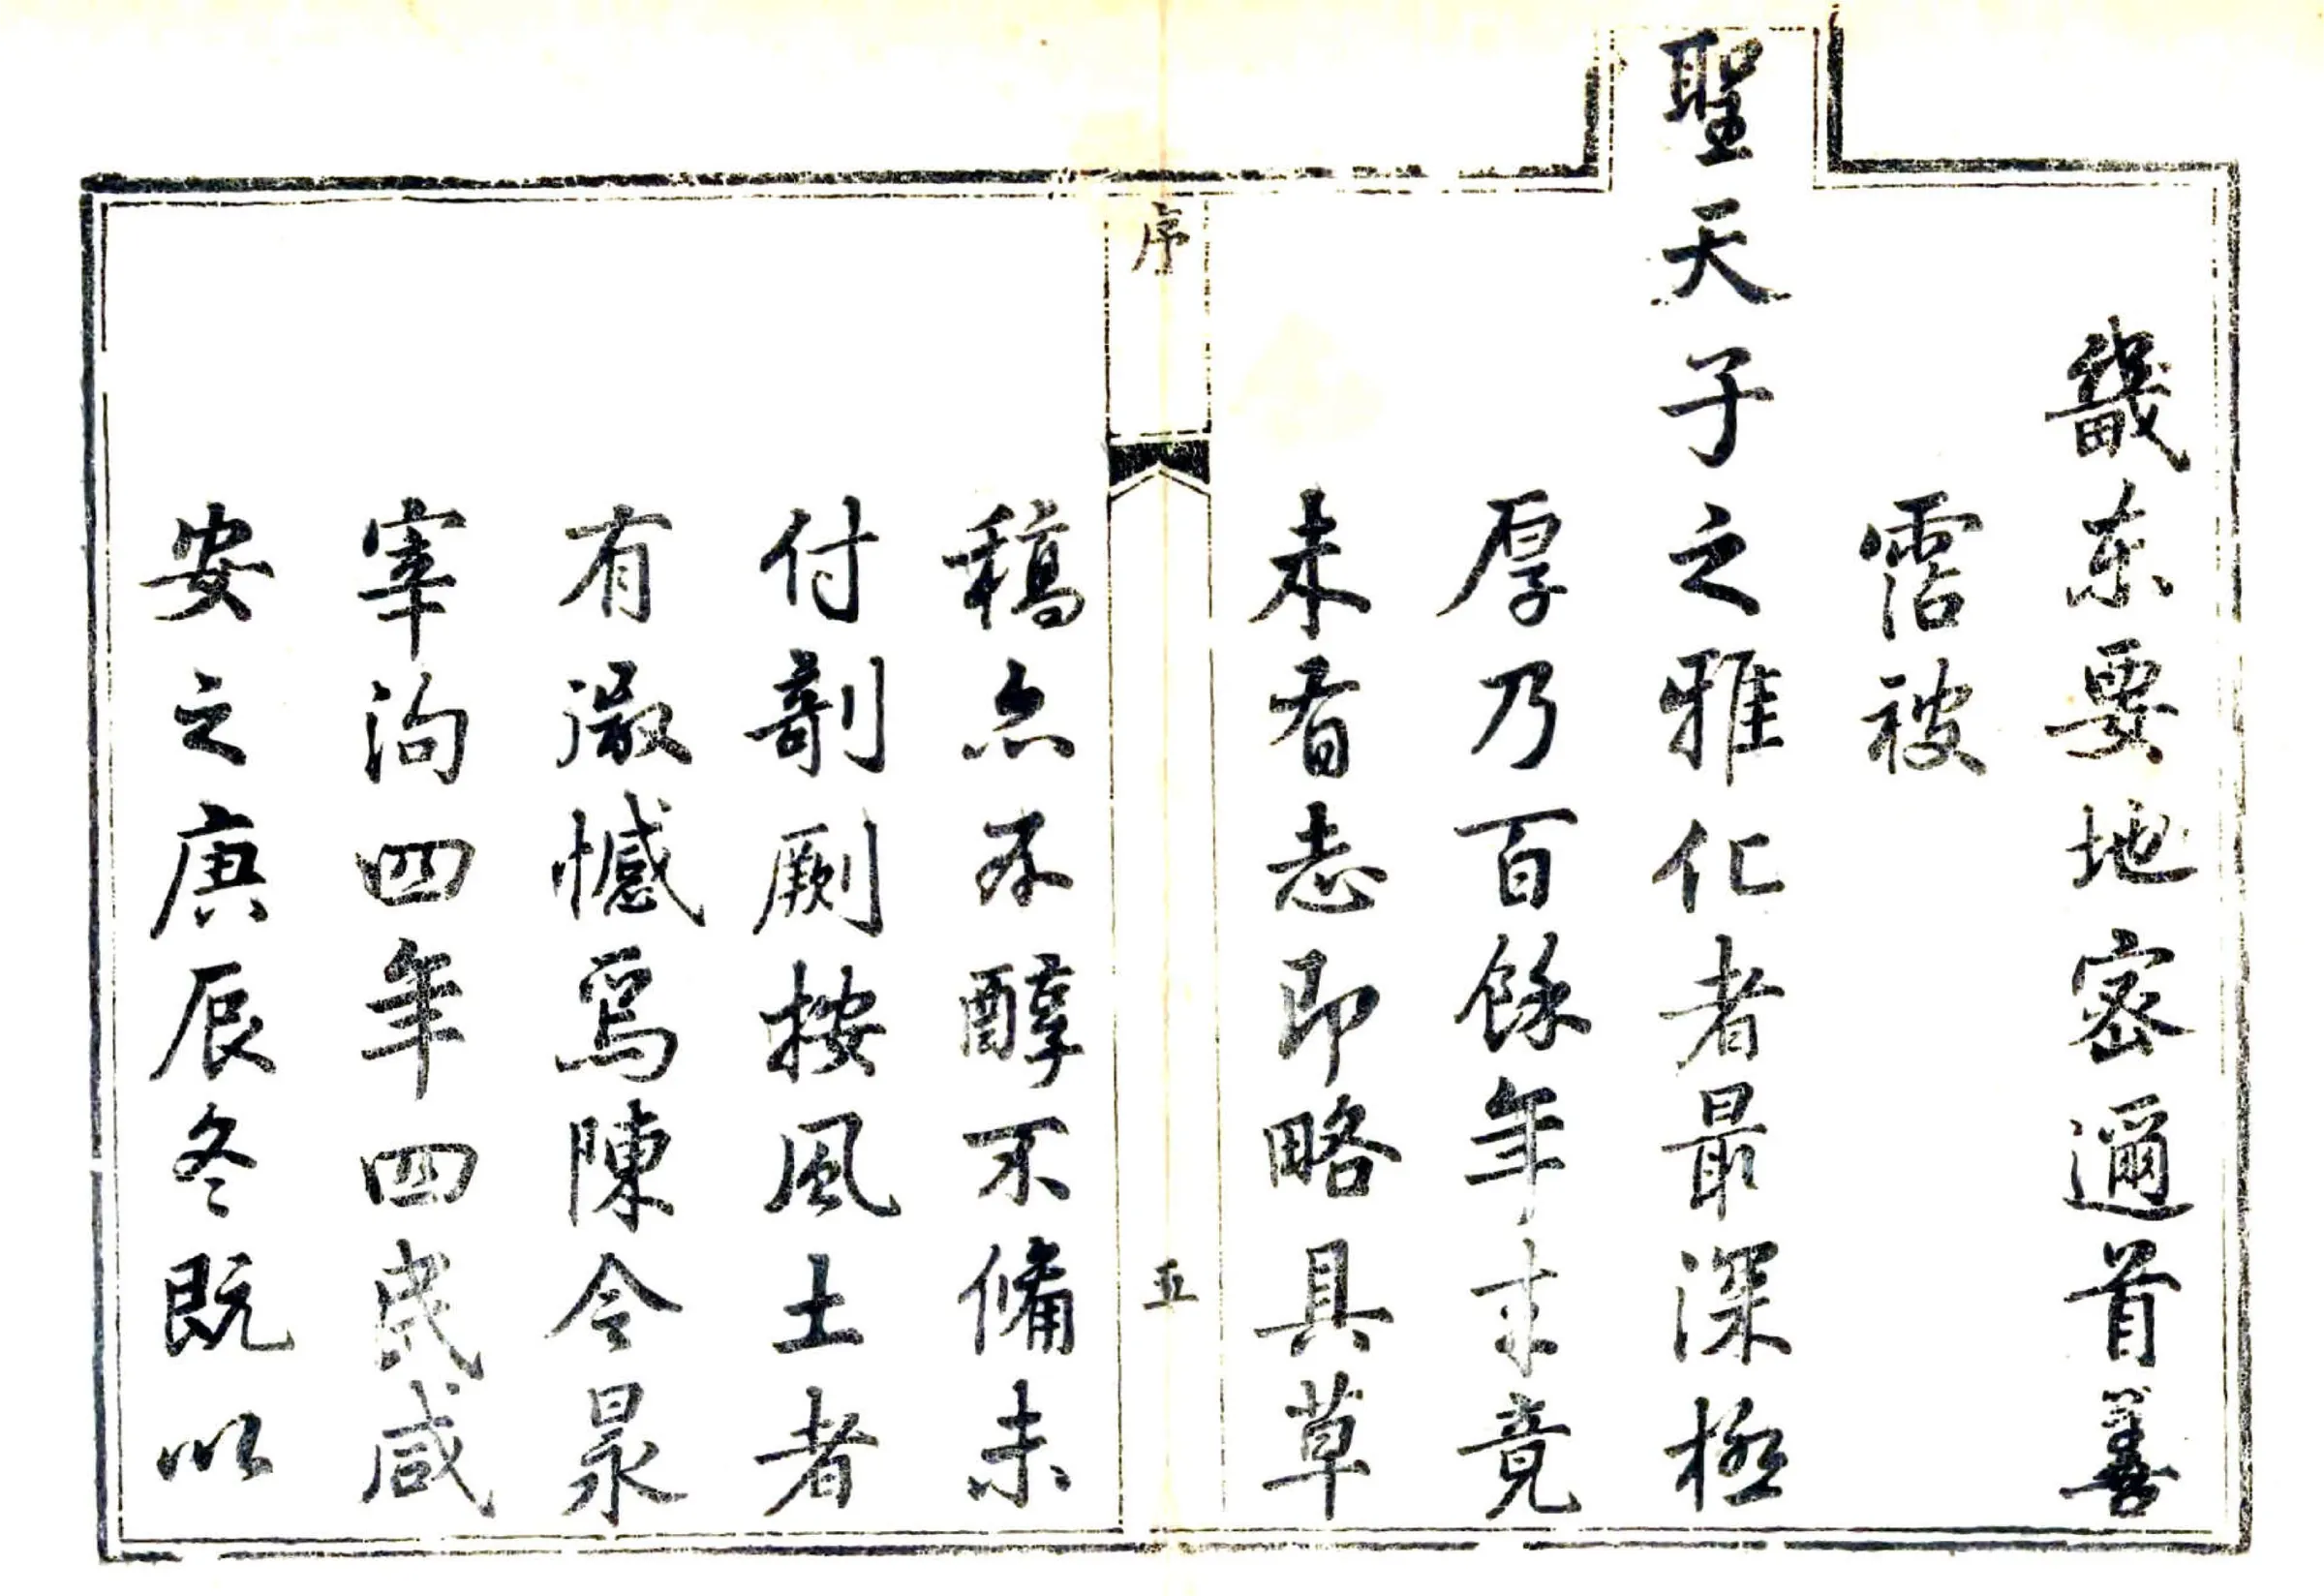 畿东要地密邇首善
霑被
聖天子之雅化者最深極
厚乃百餘年来竟
未有志即略具草
序
五
稿亦不醇不備未
付剞劂按風土者
有遺憾焉陳令泉
宰泃四年四民咸
安之庚辰冬既以